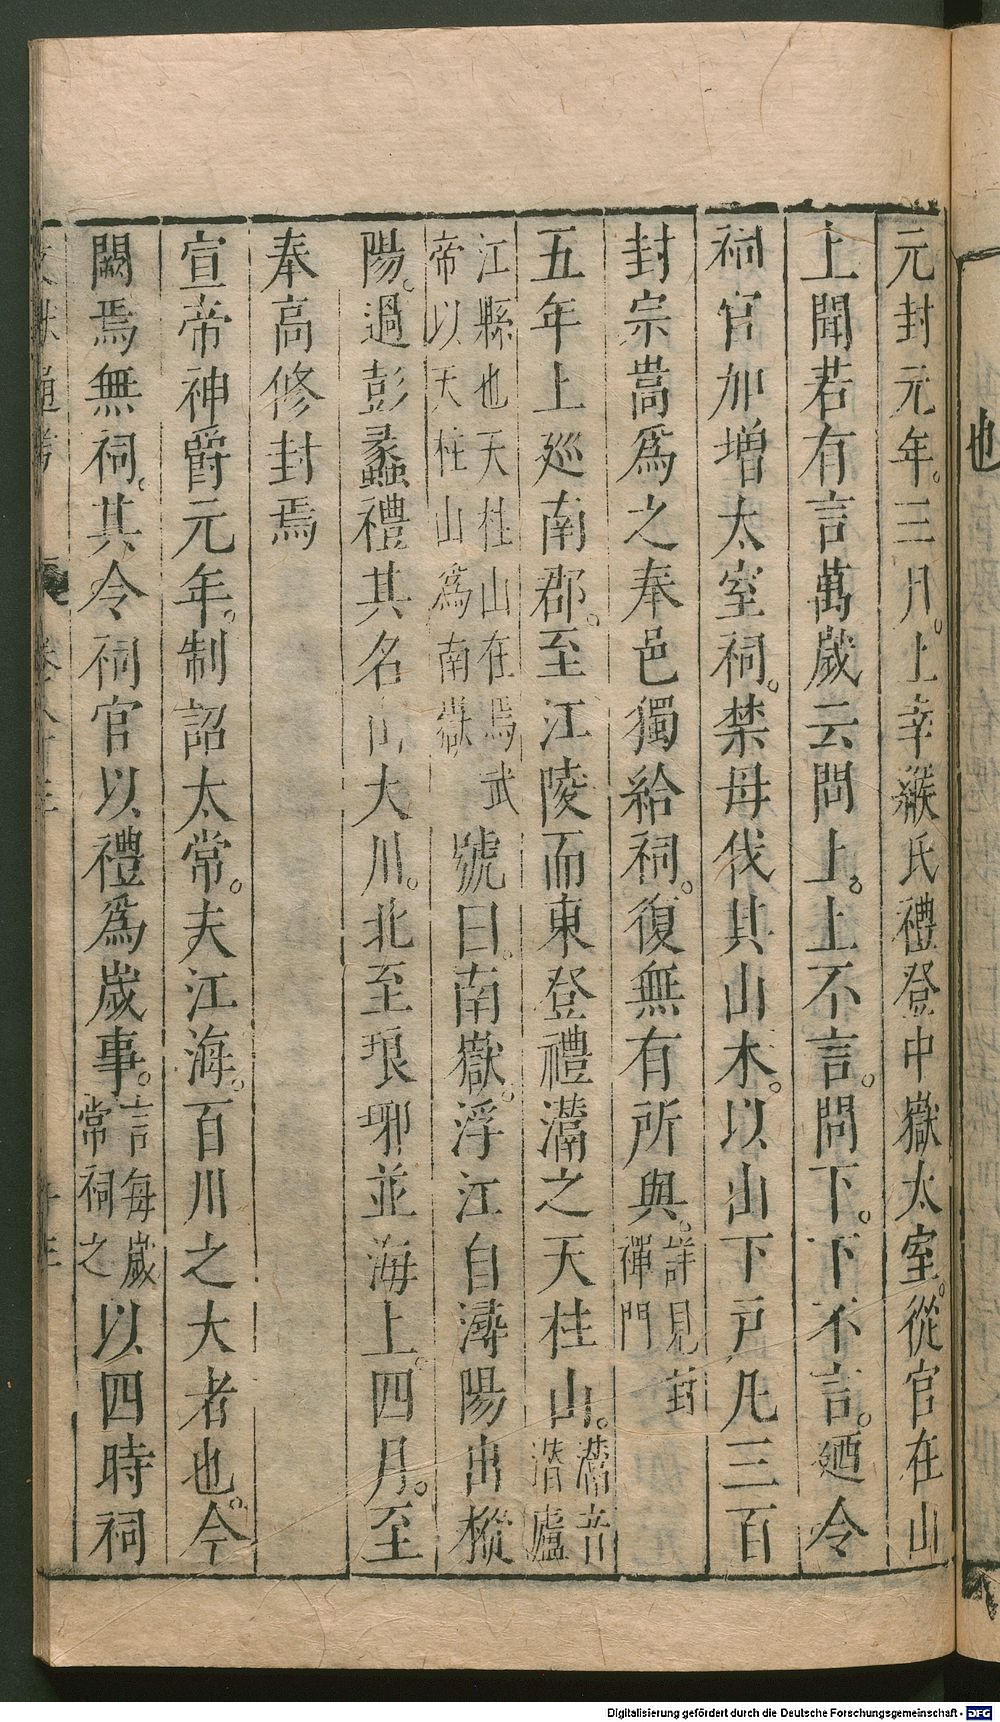 元封元年。三月。上幸緱氏禮登中嶽太室。從官在山
上聞若有言萬歲云問上。上不言。問下。下不言。廼令
祠官加增太室祠。禁毋伐其山木。以山下戶凡三百
封崇嵩爲之奉邑獨給祠。復無有所與。詳見封禪門
五年上巡南郡。至江陵而東登禮灊之天柱山。灊音潛廬
江縣也天柱山在焉武帝以天柱山爲南嶽號曰。南嶽。浮江自潯陽出樅
陽。過彭蠡禮其名山大川。北至琅琊並海上。四月。至
奉高修封焉
宣帝神爵元年。制詔太常。夫江海。百川之大者也。今
闕焉無祠。其令祠官以禮爲歲事。言每歲常祠之以四時祠
文獻通考 卷八十三
也
Digitalisierung gefördert durch die Deutsche Forschungsgemeinschaft - DFG